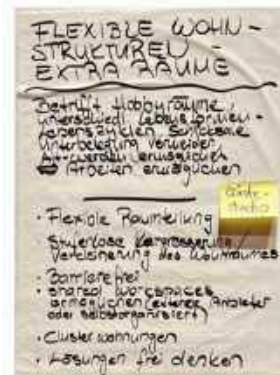 FLEXIBLE WOHN-
STRUKTUREN -
EXTRA RÄUME
Betrifft Hobbyräume,
unterschiedl. Lebensformen -
Lebenszyklen, Schicksale
Unterbelegung vermeiden
Alt-werden ermöglichen
Arbeiten ermöglichen
Gäste-
• Flexible Raumteilung
Stufenlose Vergrösserung /
Verkleinerung des Wohnraumes
• Barrierefrei
• shared workspaces
ermöglichen (externe Anbieter
oder selbstorganisiert)
• Clusterwohnungen
• Lösungen frei denken